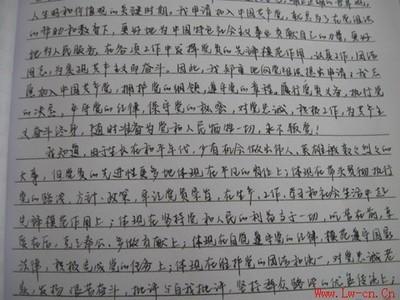 人生观和价值观的关键时期,我申请加入中国共产党,就是为了在党组织
的帮助和教育下,更好地为中国特色社会主义事业贡献自己的力量,更好
地为人民服务,在各项工作中发挥党员的先锋模范作用,认真工作,团结
同志,为实现共产主义而奋斗。因此,我郑重地向党组织提出申请:我志
愿加入中国共产党,拥护党的纲领,遵守党的章程,履行党员义务,执行党
的决定,严守党的纪律,保守党的秘密,对党忠诚,积极工作,为共产主
义奋斗终身,随时准备为党和人民牺牲一切,永不叛党!
我知道,由于生长在和平年代,少有机会做出伟人、英雄般轰轰烈烈的
大事,但党员的先进性更多地体现在平凡的岗位上:体现在带头贯彻执行
党的路线、方针、政策,牢记党员宗旨,在生产、工作、学习和社会生活中起
先锋模范作用上;体现在坚持党和人民的利益高于一切,吃苦在前,享
受在后,克己奉公,多做贡献上;体现在自觉遵守党的纪律,模范遵守国家
法律,积极完成党的任务上;体现在维护党的团结和统一,对党忠诚老
实,发扬 艰苦奋斗,批评与自我批评,坚持群众路线的优良作风上;
www.Lw-cn.Cn